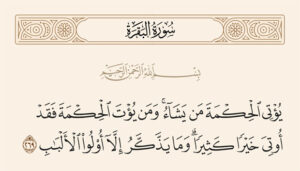 سُورَةُ البَقَرَةِ
بِسْمِ اللَّهِ الرَّحْمَٰنِ الرَّحِيمِ
يُؤْتِى ٱلْحِكْمَةَ مَن يَشَآءُ ۚ وَمَن يُؤْتَ ٱلْحِكْمَةَ فَقَدْ
أُوتِىَ خَيْرًا كَثِيرًا ۗ وَمَا يَذَّكَّرُ إِلَّآ أُو۟لُوا۟ ٱلْأَلْبَـٰبِ ٢٦٩